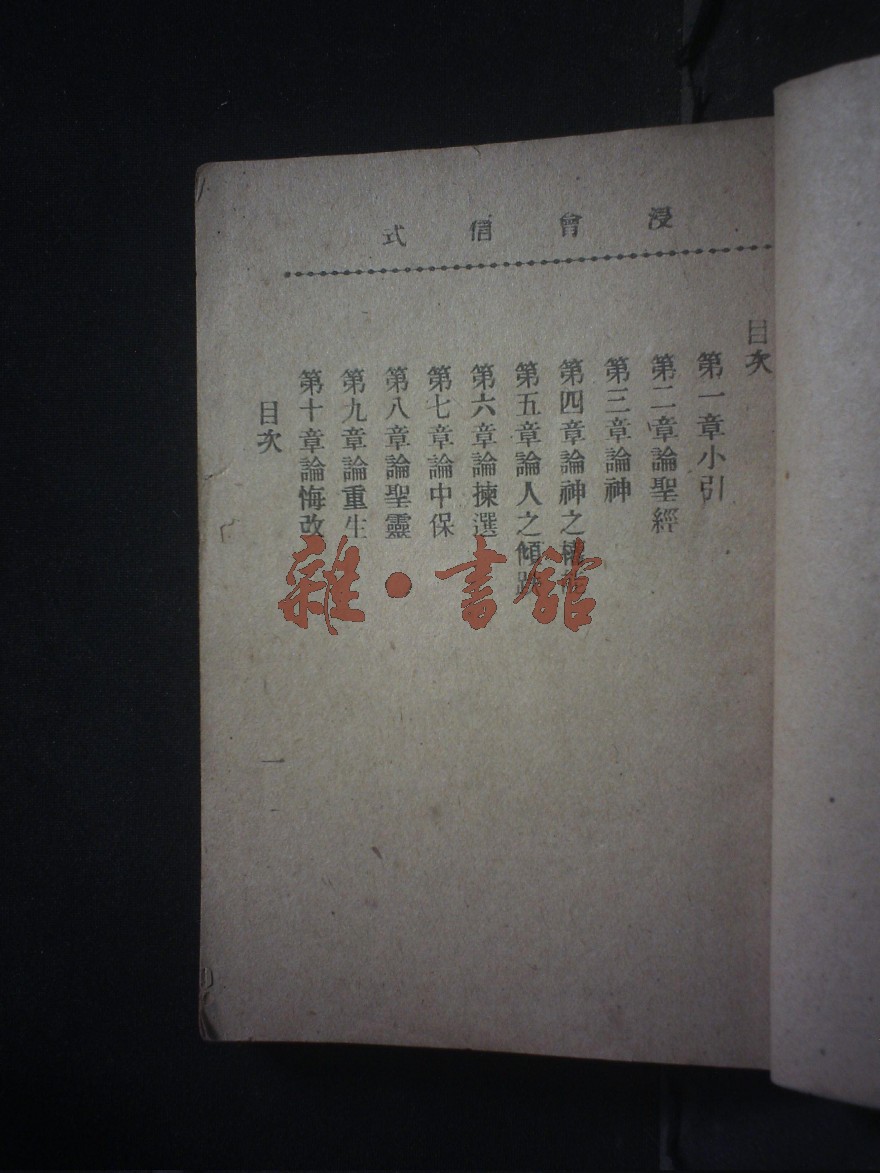 浸會信式
目次
第一章小引
第二章論聖經
第三章論神
第四章論神之
第五章論人之傾
第六章論揀選
第七章論中保
第八章論聖靈
第九章論重生
第十章論悔改
目次
一
雜·書館